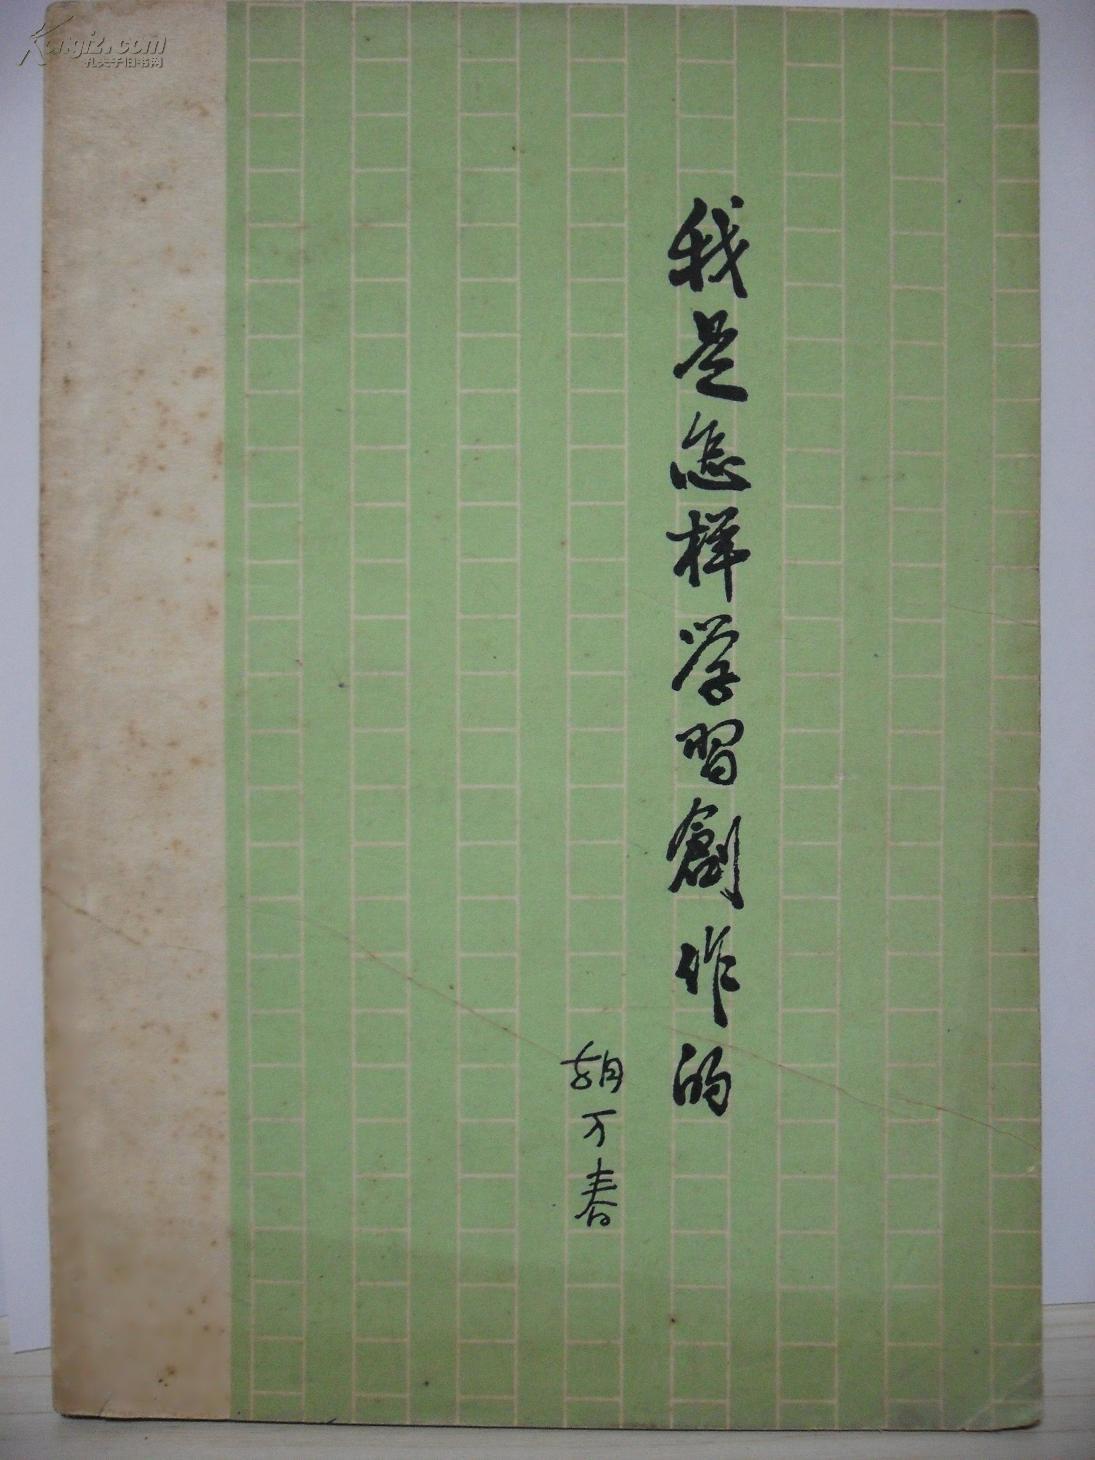 Kongfz.com
孔夫子旧书网
我是怎样学習創作的
胡万春